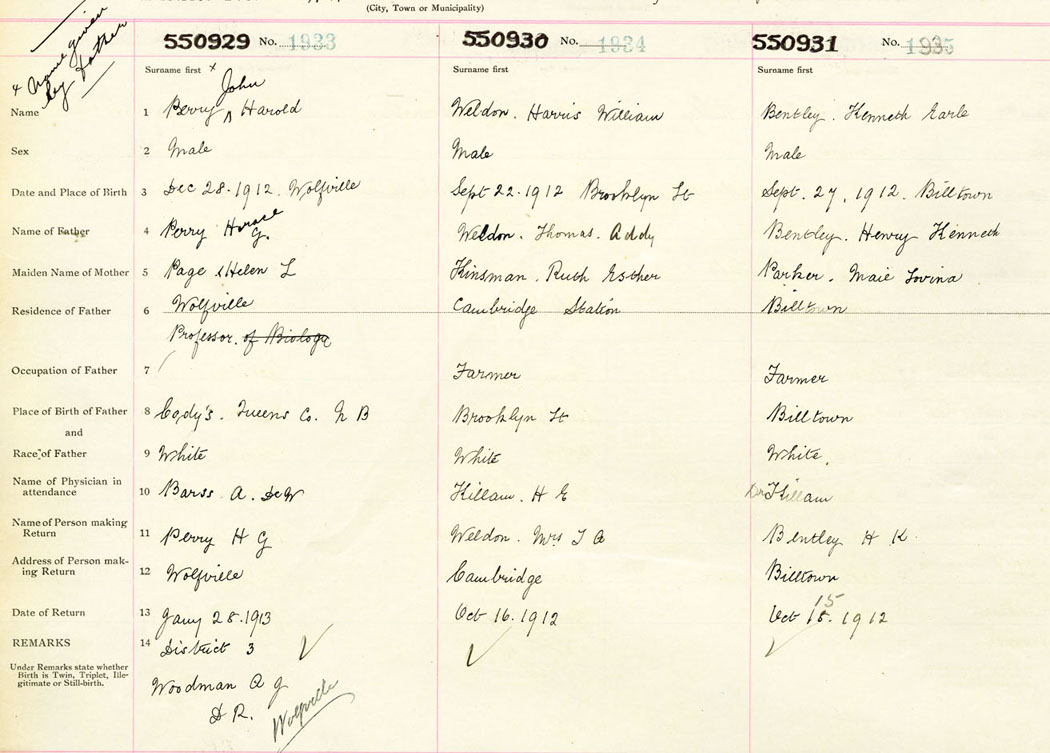 (City, Town or Municipality)
x Name given
by Father
550929 No. 1933 550930 No. 1934 550931 No. 1935
Surname first x Surname first Surname first
John
Name 1 Perry ^ Harold Weldon. Harris William Bentley. Kenneth Earle
Sex 2 Male Male Male
Date and Place of Birth 3 Dec 28. 1912. Wolfville Sept 22. 1912 Brooklyn St Sept. 27, 1912. Billtown
Horace
Name of Father 4 Perry G. Weldon. Thomas. Addy Bentley. Henry Kenneth
Maiden Name of Mother 5 Page Helen L Kinsman. Ruth Esther Parker. Maie Lovina
Residence of Father 6 Wolfville Cambridge Station Billtown
Professor. of Biology
Occupation of Father 7 Farmer Farmer
Place of Birth of Father 8 Cody's. Queens Co. N B Brooklyn St Billtown
and
Race of Father 9 White White White.
Name of Physician in
attendance 10 Barss. A. DeW Killam. H E Dr Killam
Name of Person making
Return 11 Perry H G Weldon. Mrs T A Bentley H K.
Address of Person mak-
ing Return 12 Wolfville Cambridge Billtown
15
Date of Return 13 Jany 28. 1913 Oct 16. 1912 Oct 18. 1912
REMARKS 14 District 3
Under Remarks state whether
Birth is Twin, Triplet, Ille-
gitimate or Still-birth.
Woodman A G
D R. Wolfville